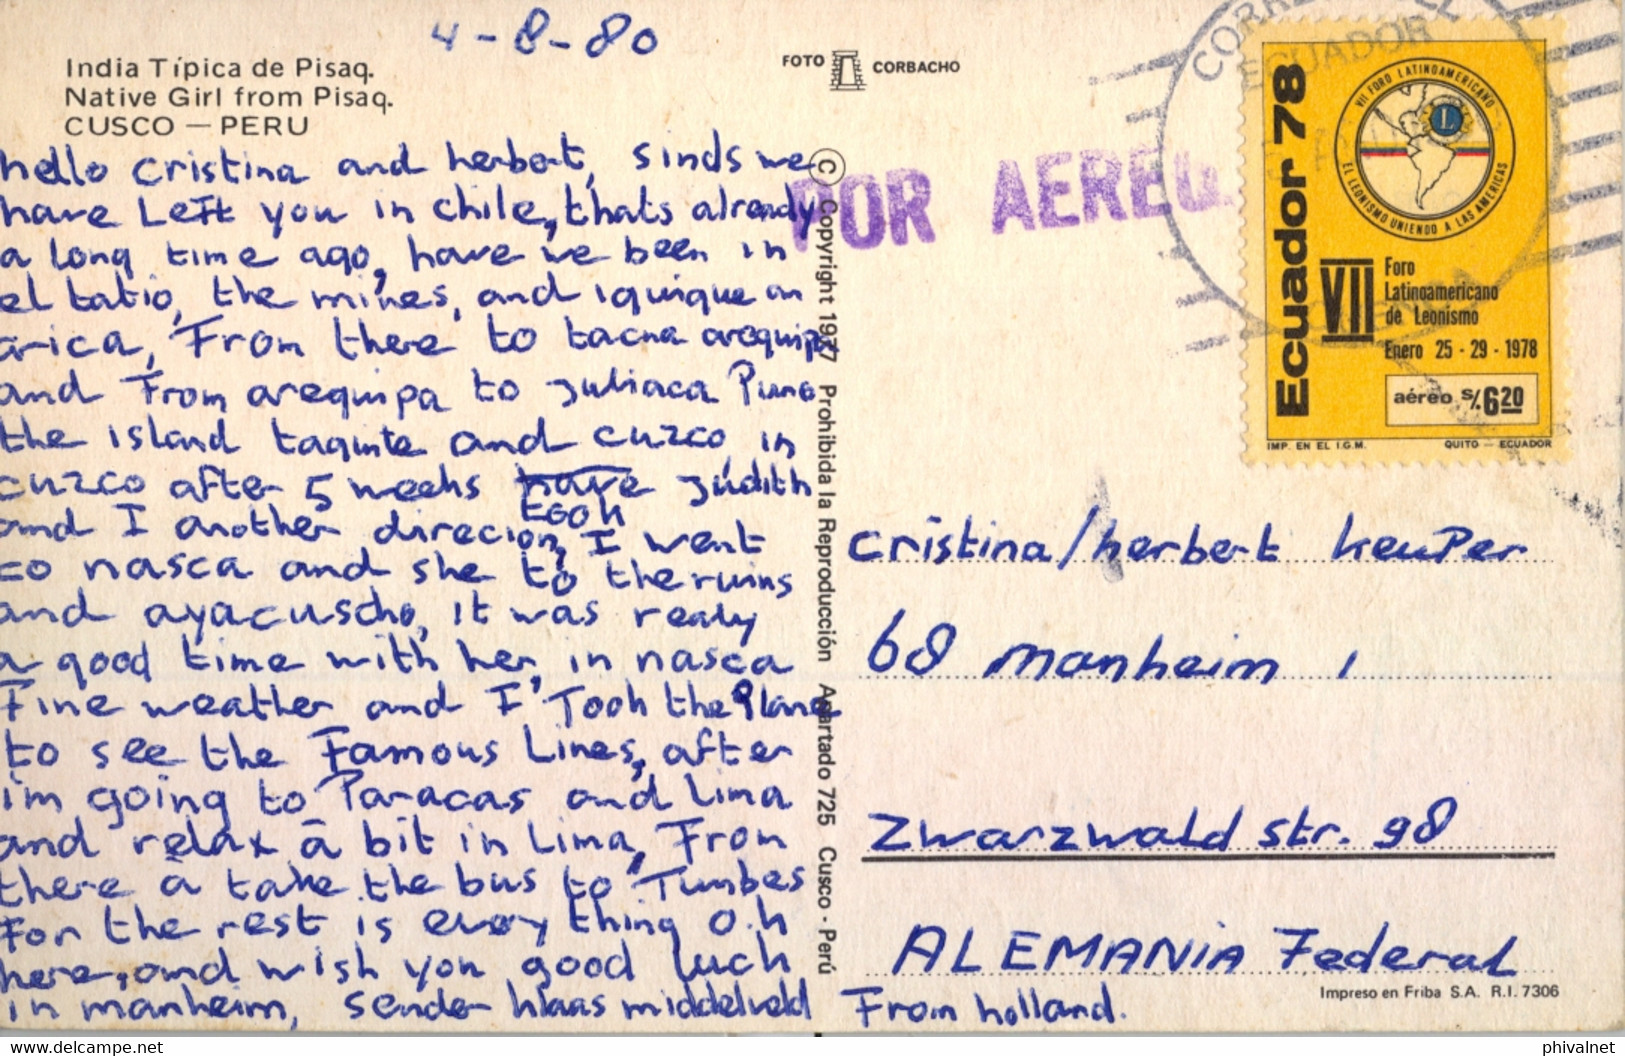 4-8-80
India Típica de Pisaq.
Native Girl from Pisaq.
CUSCO — PERU
FOTO CORBACHO
hello cristina and herbert, sinds we
have Left you in chile, thats already
a long time ago, have we been in
el tatio, the mines, and iquique an
arica, From there to tacna arequipa
and From arequipa to juliaca Puno
the island taquite and cuzco, in
cuzco after 5 weeks have judith
and I another direcion, I went
Egoh
to nasca and she to the ruins
and ayacuscho, it was realy
a good time with her, in nasca
Fine weather and I Tooh the Plane
to see the Famous Lines, after
i'm going to Paracas and Lima
and relax a bit in Lima, From
there a take the bus to Tumbes
For the rest is every thing o.h
here, and wish you good luch
in manheim, sender klaas middelveld From holland.
© Copyright 1977 Prohibida la Reproducción Apartado 725 Cusco - Perú
POR AEREO
CORREO
ECUADOR
Ecuador 78
VII FORO LATINOAMERICANO
EL LEONISMO UNIENDO A LAS AMERICAS
L
VII
Foro
Latinoamericano
de Leonismo
Enero 25 - 29 - 1978
aéreo S/. 6.20
IMP. EN EL I.G.M. QUITO — ECUADOR
cristina/herbert keuPer
68 manheim 1
Zwarzwald str. 98
ALEMANIA Federal
Impreso en Friba S.A. R.I. 7306
delcampe.net
phivalnet